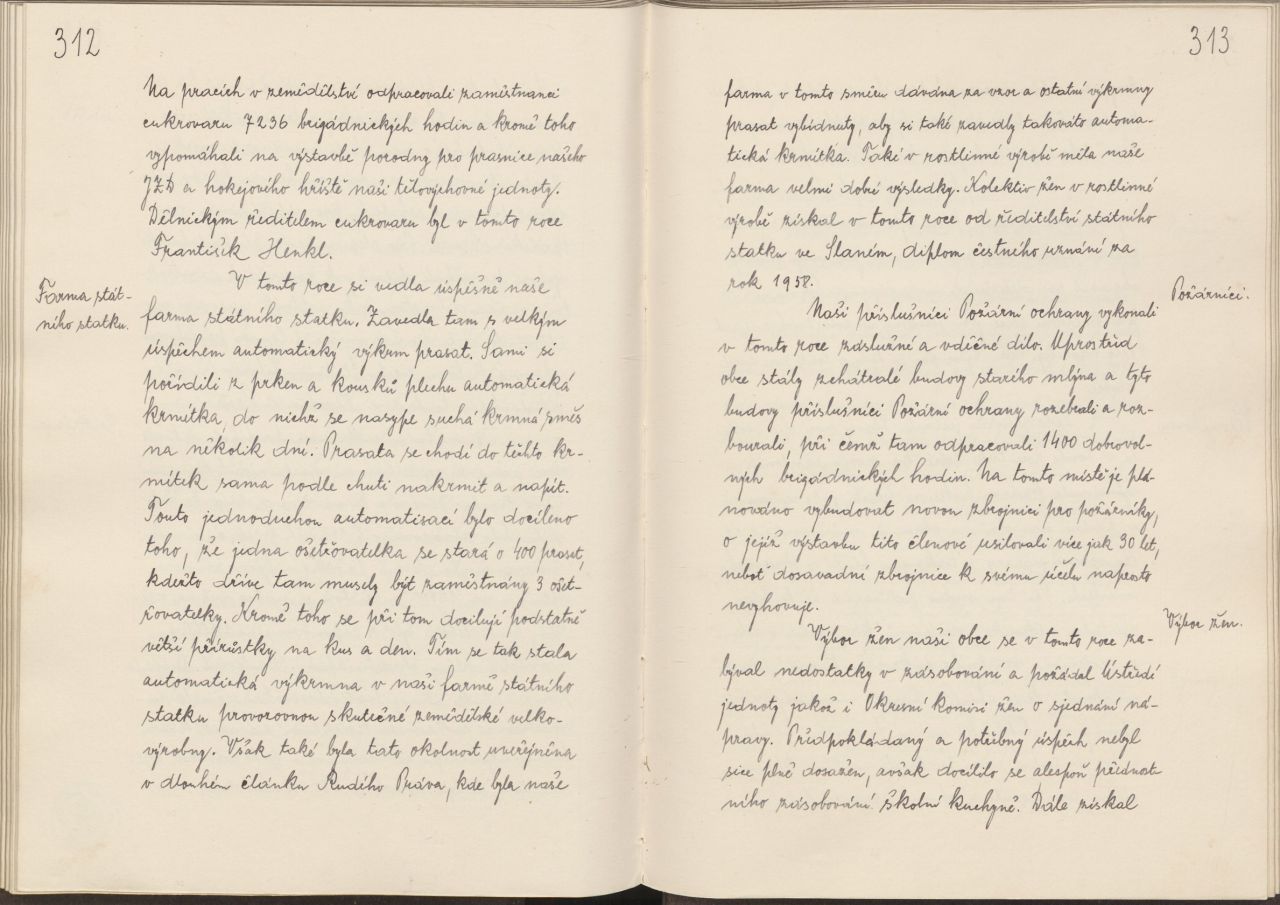 312
Na pracích v zemědělství odpracovali zaměstnanci
cukrovaru 7236 brigádnických hodin a kromě toho
vypomáhali na výstavbě porodny pro prasnice našeho
JZD a hokejového hřiště naší tělovýchovné jednoty.
Dělnickým ředitelem cukrovaru byl v tomto roce
František Henkl.
Farma stát-
ního statku.
V tomto roce si vedla úspěšně naše
farma státního statku. Zavedla tam s velkým
úspěchem automatický výkrm prasat. Sami si
pořídili z prken a kousků plechu automatická
krmítka, do nichž se nasype suchá krmná směs
na několik dní. Prasata se chodí do těchto kr-
mítek sama podle chuti nakrmit a napít.
Touto jednoduchou automatisací bylo docíleno
toho, že jedna ošetřovatelka se stará o 400 prasat,
kdežto dříve tam musely být zaměstnány 3 ošet-
řovatelky. Kromě toho se při tom docilují podstatně
větší přírůstky na kus a den. Tím se tak stala
automatická výkrmna v naší farmě státního
statku provozovnou skutečné zemědělské velko-
výrobny. Však také byla tato okolnost uveřejněna
v dlouhém článku Rudého Práva, kde byla naše
313
farma v tomto směru dávána za vzor a ostatní výkrmny
prasat vybídnuty, aby si také zavedly takováto automa-
tická krmítka. Také v rostlinné výrobě měla naše
farma velmi dobré výsledky. Kolektiv žen v rostlinné
výrobě získal v tomto roce od ředitelství státního
statku ve Slaném, diplom čestného uznání za
rok 1958.
Požárníci.
Naši příslušníci Požární ochrany vykonali
v tomto roce záslužné a vděčné dílo. Uprostřed
obce stály zchátralé budovy starého mlýna a tyto
budovy příslušníci Požární ochrany rozebrali a roz-
bourali, při čemž tam odpracovali 1400 dobrovol-
ných brigádnických hodin. Na tomto místě je plá-
nováno vybudovat novou zbrojnici pro požárníky,
o jejíž výstavbu tito členové usilovali více jak 30 let,
neboť dosavadní zbrojnice k svému účelu naprosto
nevyhovuje.
Výbor žen.
Výbor žen naší obce se v tomto roce za-
býval nedostatky v zásobování a požádal Ústředí
jednoty jakož i Okresní komisi žen o sjednání ná-
pravy. Předpokládaný a potřebný úspěch nebyl
sice plně dosažen, avšak docílilo se alespoň přednost-
ního zásobování školní kuchyně. Dále získal